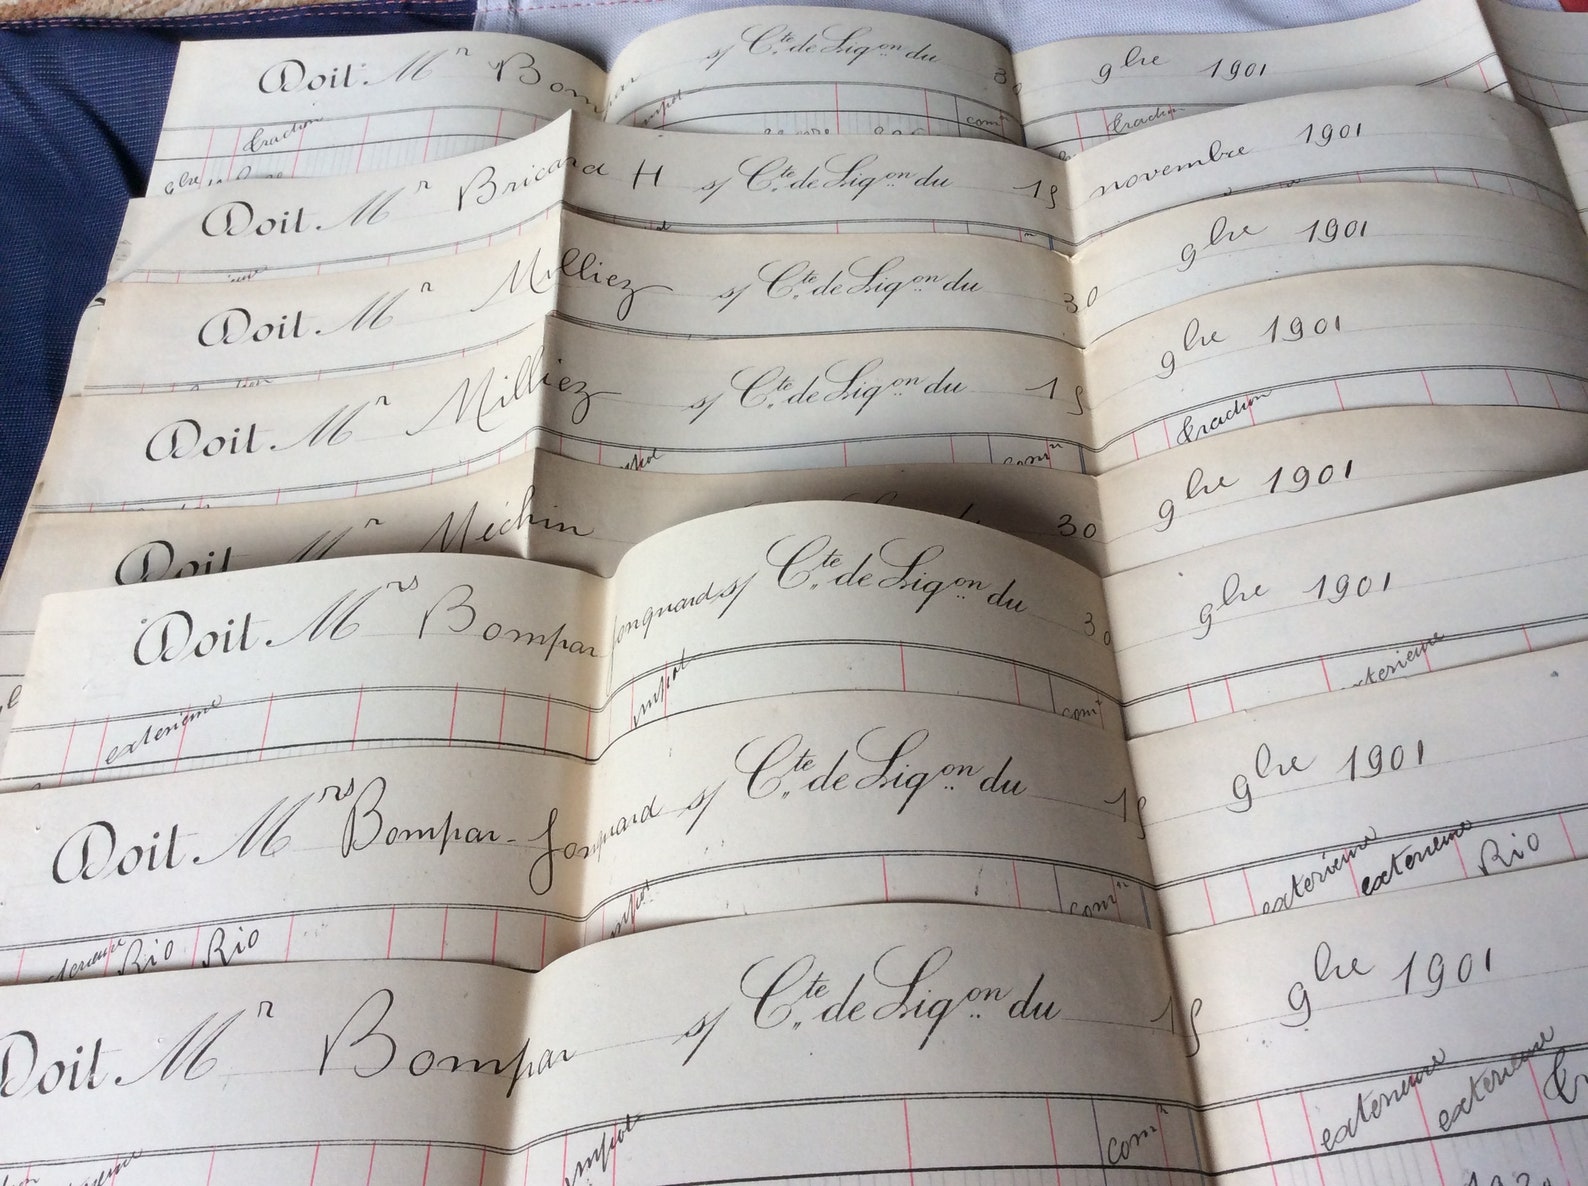 Doit Mr Bompar s/ Cte de Liqon du 30 9bre 1901
traction impot comon traction
9bre
Doit Mr Bricard H s/ Cte de Liqon du 15 novembre 1901
Doit Mr Milliez s/ Cte de Liqon du 30 9bre 1901
Doit Mr Milliez s/ Cte de Liqon du 15 9bre 1901
impot comon traction
Doit Mr Méchin 30 9bre 1901
Doit Mrs Bompar Jonquard s/ Cte de Liqon du 30 9bre 1901
exterieure impot comon exterieure
Doit Mrs Bompar-Jonquard s/ Cte de Liqon du 15 9bre 1901
exterieure Rio Rio impot comon exterieure exterieure Rio
Doit Mr Bompar s/ Cte de Liqon du 15 9bre 1901
impot comon exterieure exterieure